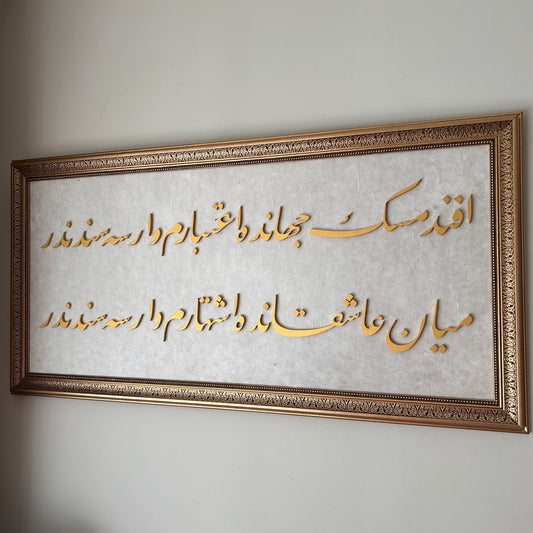 افندمسك جهانده اعتبارم وارسه سندندر
میان عاشقانده اشتهارم وارسه سندندر